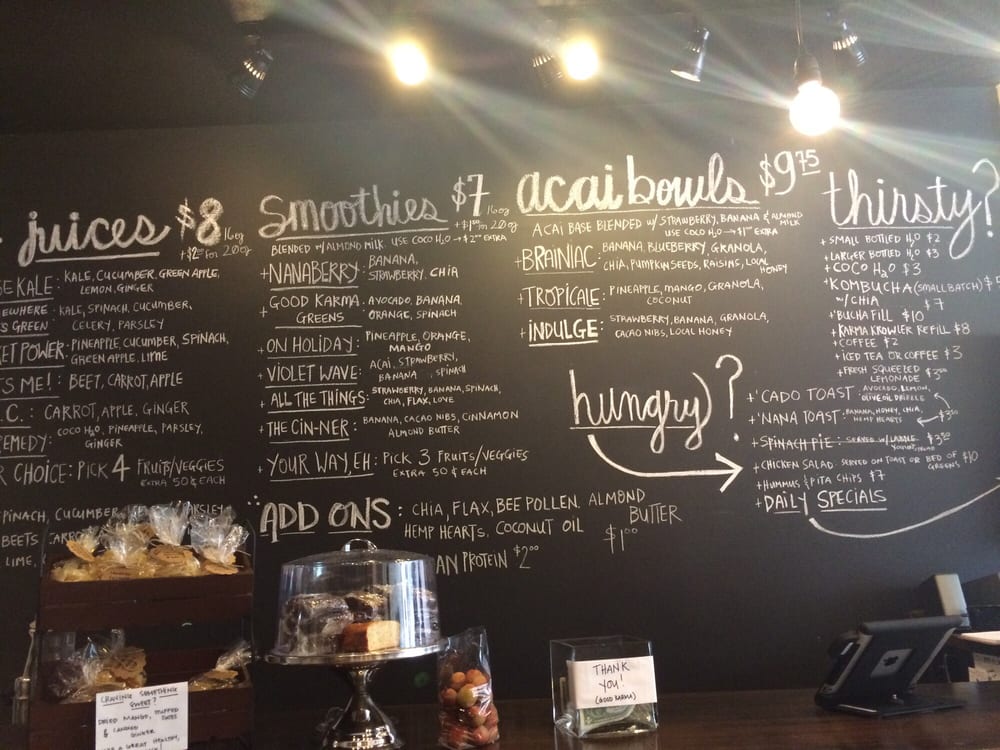 juices $8 16oz
+$2.00 for 20oz
KALE: KALE, CUCUMBER, GREEN APPLE,
LEMON, GINGER
EWHERE: KALE, SPINACH, CUCUMBER,
GREEN CELERY, PARSLEY
POWER: PINEAPPLE, CUCUMBER, SPINACH,
GREEN APPLE, LIME
'S ME!: BEET, CARROT, APPLE
.C.: CARROT, APPLE, GINGER
EMEDY: COCO H2O, PINEAPPLE, PARSLEY,
GINGER
R CHOICE: PICK 4 FRUITS/VEGGIES
EXTRA 50¢ EACH
SPINACH, CUCUMBER, PARSLEY
BEETS, CARROT
LIME,
Smoothies $7 16oz
+$1.00 for 20oz
BLENDED W/ ALMOND MILK. USE COCO H2O → $2.00 EXTRA
+NANABERRY: BANANA,
STRAWBERRY, CHIA
GOOD KARMA GREENS: AVOCADO, BANANA,
ORANGE, SPINACH
+ON HOLIDAY: PINEAPPLE, ORANGE,
MANGO
+VIOLET WAVE: ACAI, STRAWBERRY,
BANANA SPINACH
+ALL THE THINGS: STRAWBERRY, BANANA, SPINACH,
CHIA, FLAX, LOVE
+THE CIN-NER: BANANA, CACAO NIBS, CINNAMON
ALMOND BUTTER
+YOUR WAY, EH: PICK 3 FRUITS/VEGGIES
EXTRA 50¢ EACH
ADD ONS: CHIA, FLAX, BEE POLLEN, ALMOND
BUTTER
HEMP HEARTS, COCONUT OIL $1.00
AN PROTEIN $2.00
acai bowls $9.75
ACAI BASE BLENDED W/ STRAWBERRY, BANANA & ALMOND
MILK
USE COCO H2O → $1.00 EXTRA
+BRAINIAC: BANANA, BLUEBERRY, GRANOLA,
CHIA, PUMPKIN SEEDS, RAISINS, LOCAL
HONEY
+TROPICALE: PINEAPPLE, MANGO, GRANOLA,
COCONUT
+INDULGE: STRAWBERRY, BANANA, GRANOLA,
CACAO NIBS, LOCAL HONEY
thirsty?
+SMALL BOTTLED H2O $2
+LARGER BOTTLED H2O $3
+COCO H2O $3
+KOMBUCHA (SMALL BATCH) $
W/ CHIA $7
+'BUCHA FILL $10
+KARMA KROWLER REFILL $8
+COFFEE $2
+ICED TEA OR COFFEE $3
+FRESH SQUEEZED
LEMONADE $3.00
hungry?
+'CADO TOAST: AVOCADO, LEMON,
OLIVE OIL DRIZZLE
+'NANA TOAST: BANANA, HONEY, CHIA,
HEMP HEARTS $3.50
+SPINACH PIE: SERVED W/ $3.50
+CHICKEN SALAD: SERVED ON TOAST OR BED OF
GREENS $10
+HUMMUS & PITA CHIPS $7
+DAILY SPECIALS
CRAVING SOMETHING
SWEET?
DRIED MANGO, STUFFED
DATES
& CANDIED
GINGER
A GREAT HEALTHY,
THANK
YOU!
(GOOD KARMA)